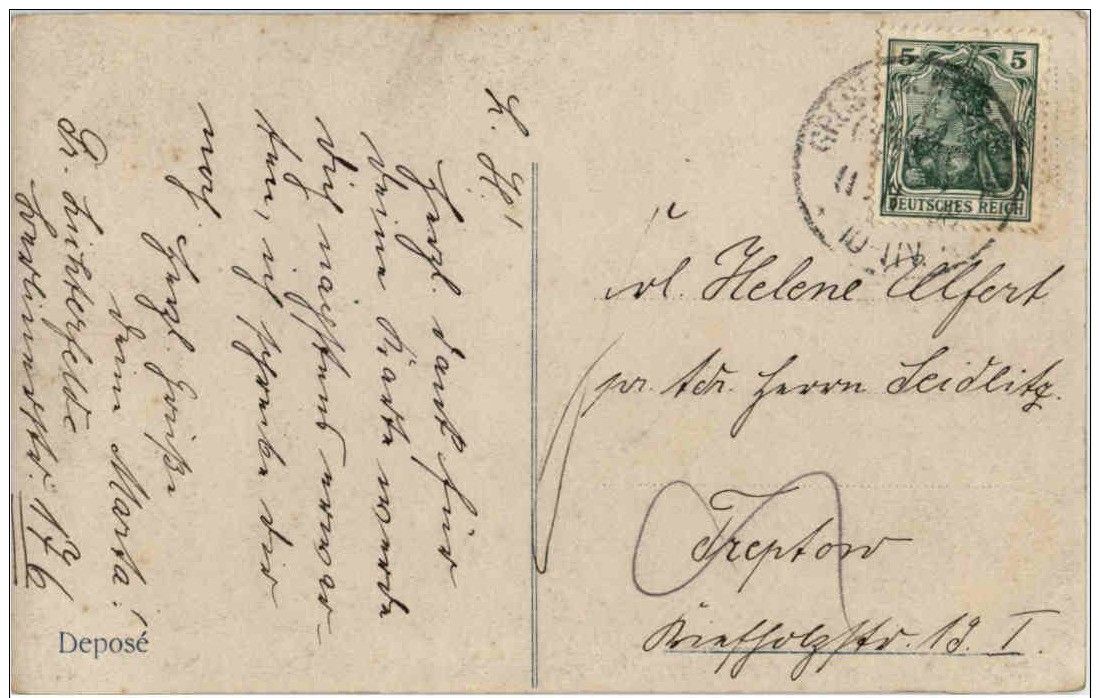 L. H!
Herzl. Dank für
Deine Karte werde
Dich nächstens erwar-
ten, ich schreibe dir
noch.
Herzl. Grüße
Deine Marta!
Gr. Lichterfelde
Berlinerstr. 176
Deposé
5 5
DEUTSCHES REICH
GROSS
Frl. Helene Alfert
pr. adr. Herrn Seidlitz.
Treptow
Kiefholzstr. 19. I.